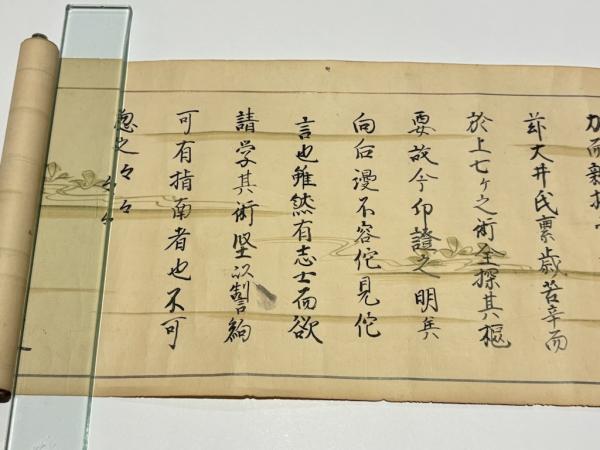 加而
茲大井氏累歳苦辛而
於上七ヶ之術全探其樞
要故今印證之明矣
向后謾不容佗見佗
言也雖然有志士而欲
請学其術堅以誓約
可有指南者也不可
忽之々々
々々